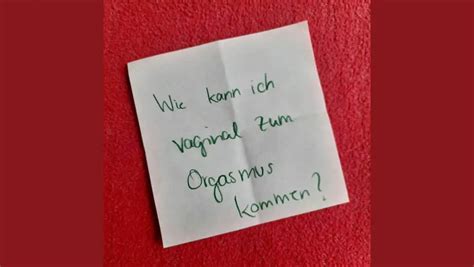 Wie kann ich
vaginal zum
Orgasmus
kommen?